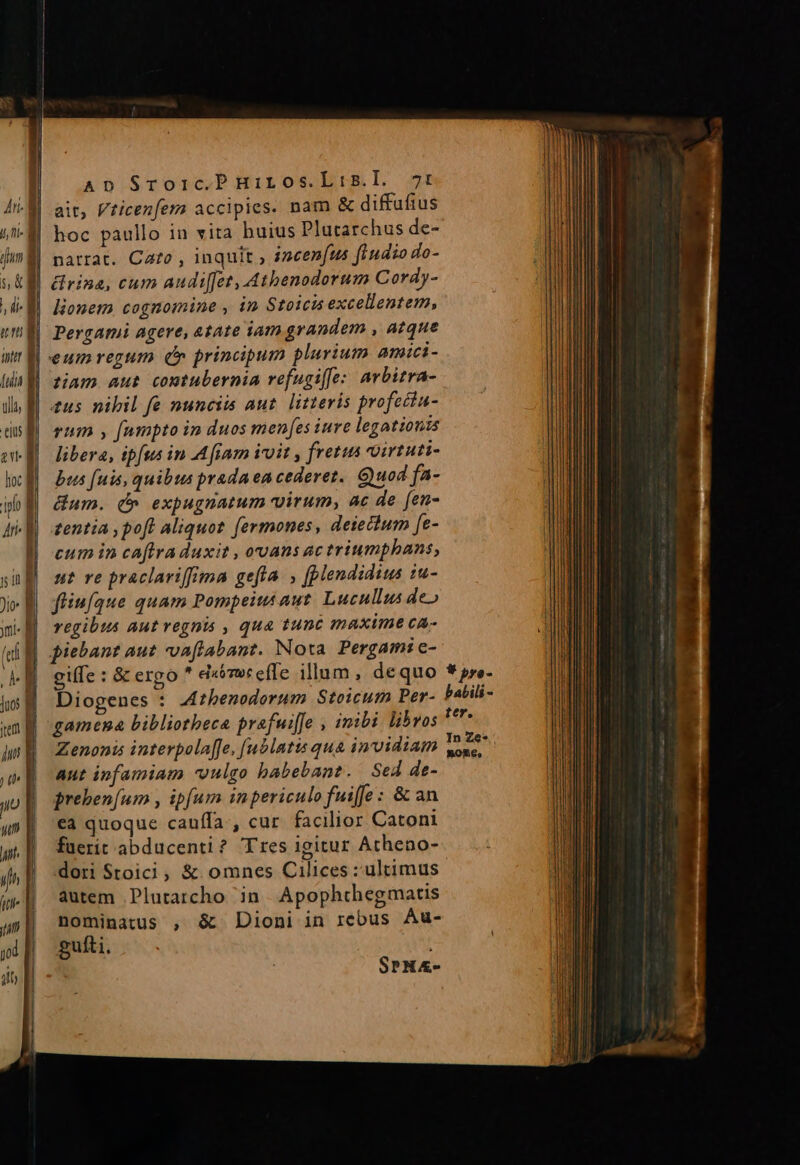 AD STOIC. PHILOS. LIB. I. 71
ait, Vticensem accipies. nam & diffusius
hoc paullo in vita huius Plutarchus de-
narrat. Cato, inquit, incensus studio do-
ctrinæ, cum audisset, Athenodorum Cordy-
lionem cognomine, in Stoicis excellentem,
Pergami agere, ætate iam grandem, atque
eum regum & principum plurium amici-
tiam aut contubernia refugisse: arbitra-
tus nihil se nunciis aut litteris profectu-
rum, sumpto in duos menses iure legationis
libera, ipsus in Asiam ivit, fretus virtuti-
bus suis, quibus præda ea cederet. Quod fa-
ctum. & expugnatum virum, ac de sen-
tentia, post aliquot sermones, deiectum se-
cum in castra duxit, ovans ac triumphans,
ut re præclarissima gesta, splendidius iu-
stiusque quam Pompeius aut Lucullus de
regibus aut regnis, quæ tunc maxime ca-
piebant aut vastabant. Nota Pergami e-
gisse: & ergo * εἰκότως esse illum, de quo
Diogenes: Athenodorum Stoicum Per-
gamenæ bibliothecæ præfuisse, inibi libros
Zenonis interpolasse, sublatis quæ invidiam
aut infamiam vulgo habebant. Sed de-
prehensum, ipsum in periculo fuisse: & an
ea quoque caussa, cur facilior Catoni
fuerit abducenti? Tres igitur Atheno-
dori Stoici, & omnes Cilices: ultimus
autem Plutarcho in Apophthegmatis
nominatus, & Dioni in rebus Au-
gusti.
SPHÆ-
* pro-
babili-
ter.
In Ze-
none,